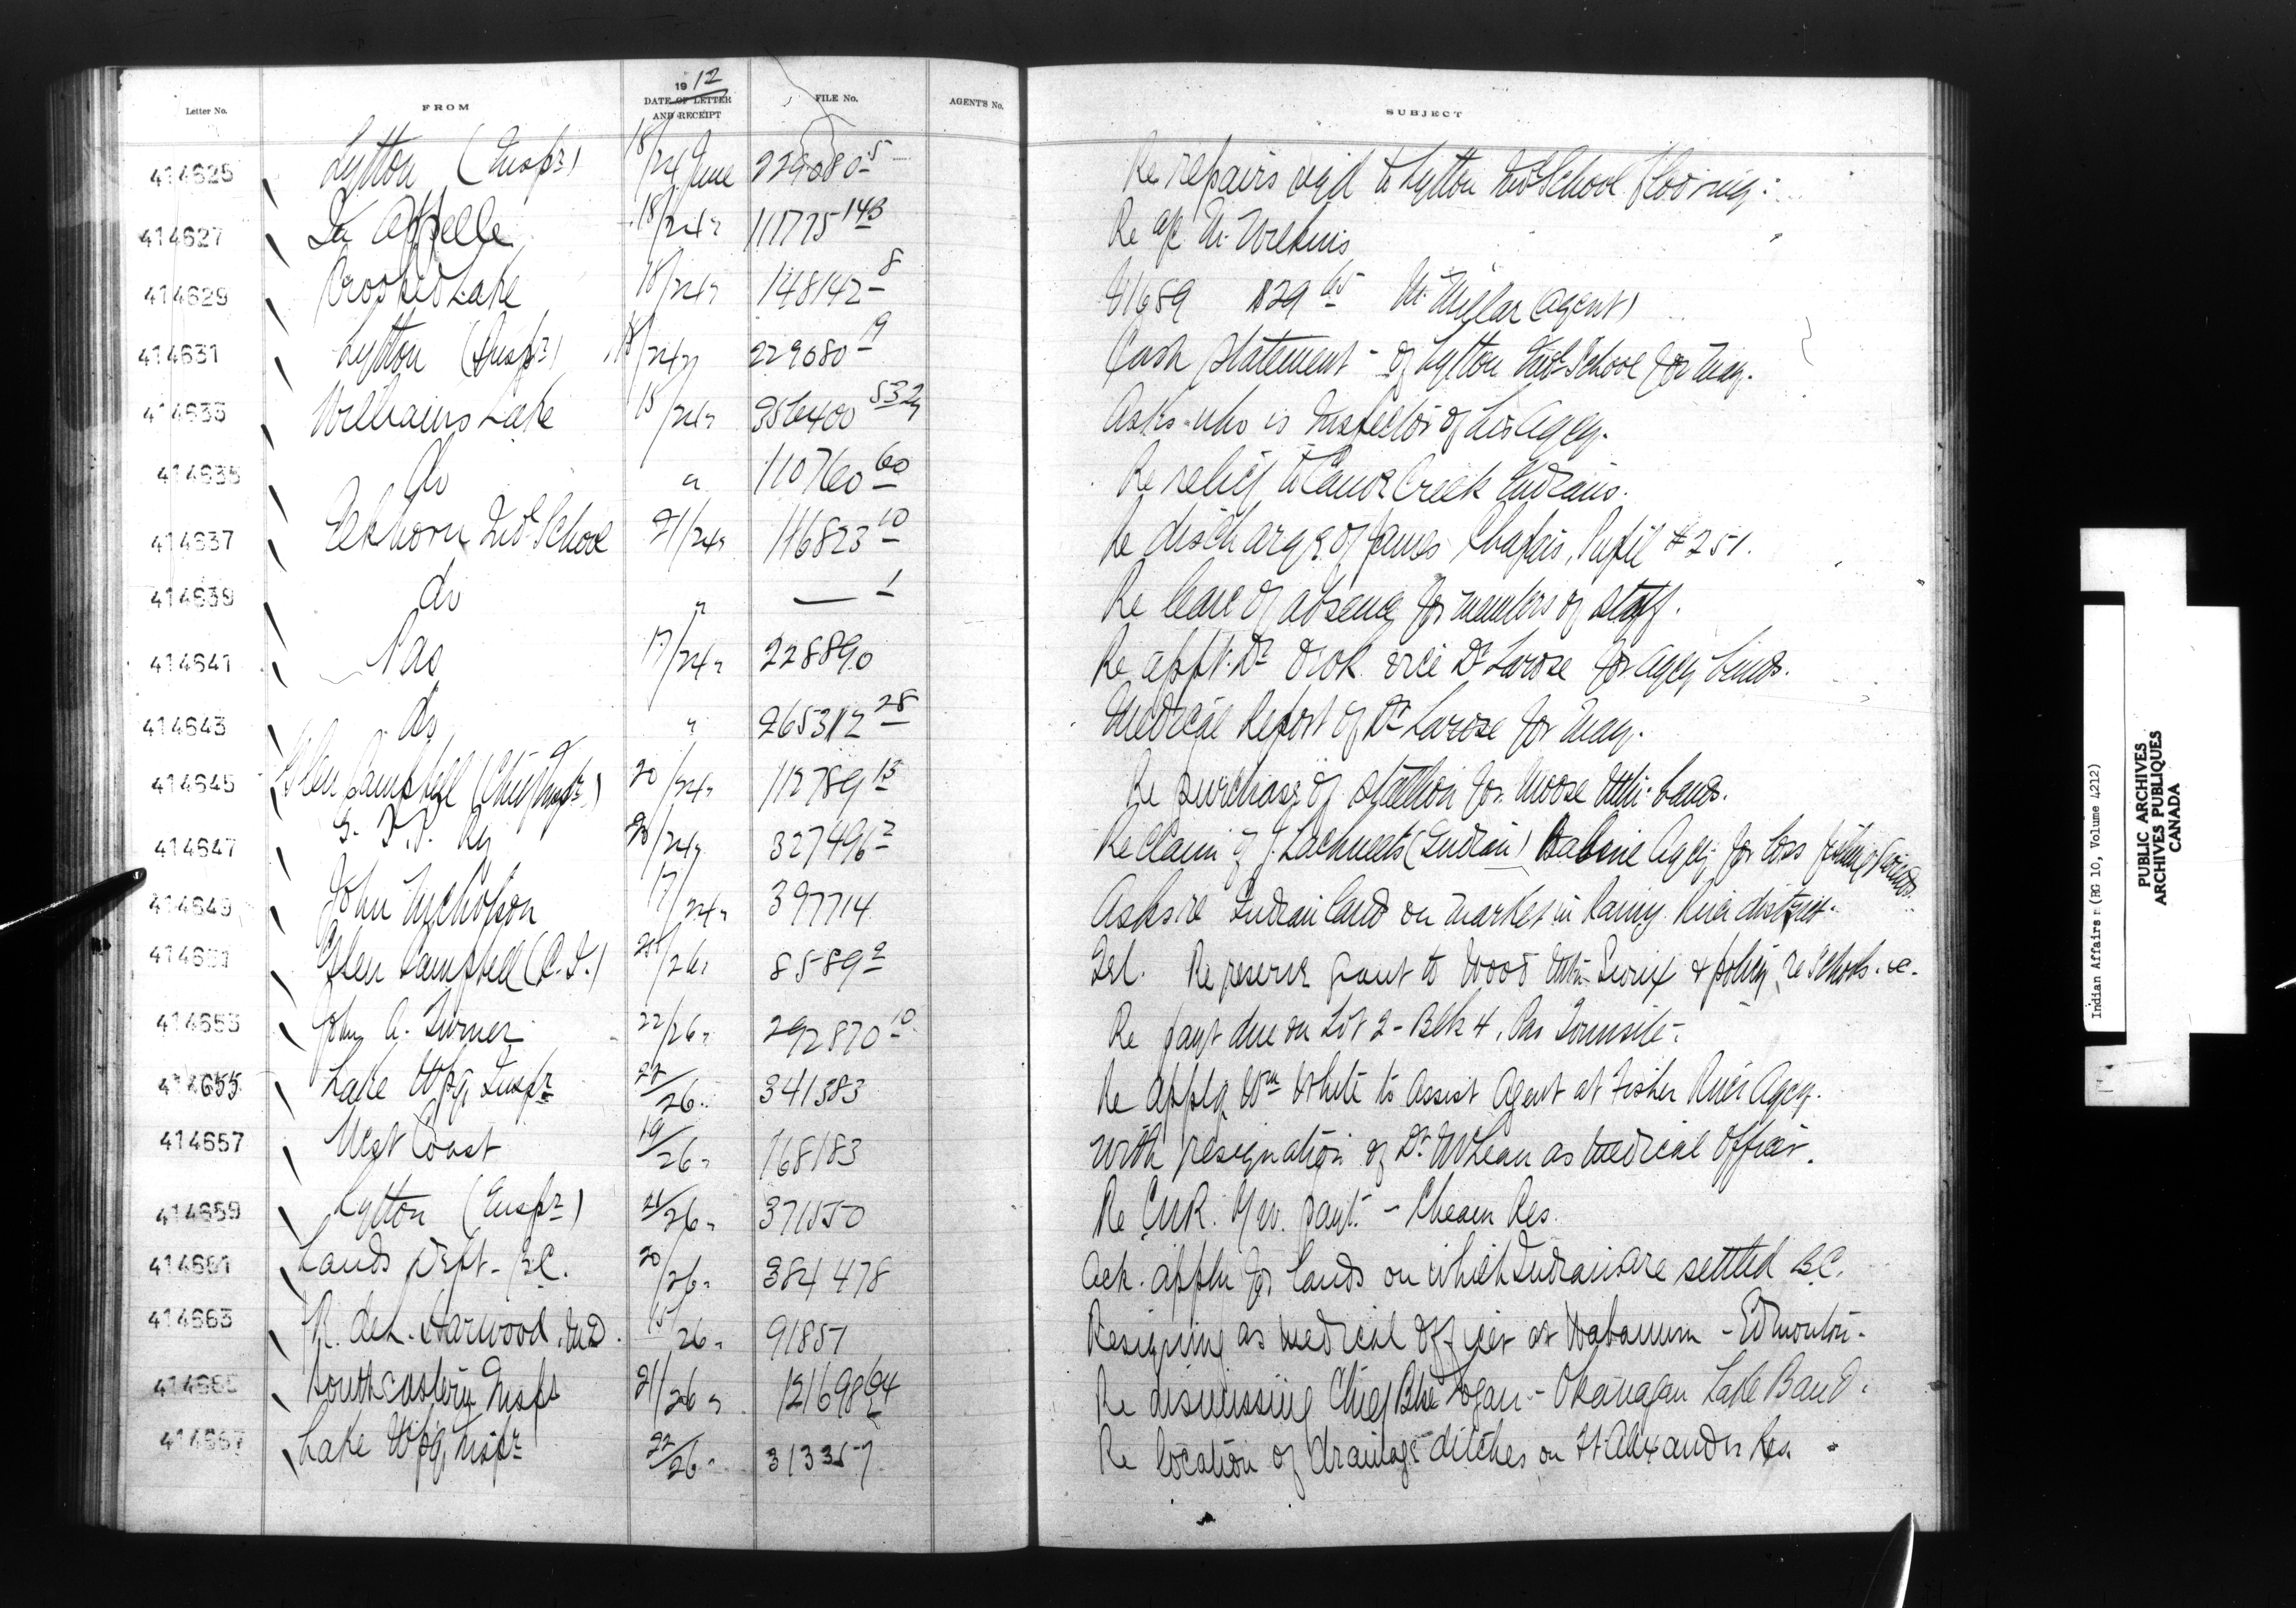 Letter No. FROM 1912 DATE OF LETTER AND RECEIPT FILE No. AGENT'S No. SUBJECT
414625 Lytton (Inspr) 18/24 June 229080-5 Re repairs reqd to Lytton Ind School Flooring
414627 Qu'Appelle 18/24 " 111775 143 Re a/c
414629 Crooked Lake 18/24 " 148142-8 E1689 $29 65 M. Millar (Agent)
414631 Lytton (Inspr) 18/24 " 229080-9 Cash Statement - of Lytton Indl School for May.
414633 Williams Lake 15/24 " 356400 532 Asks who is Inspector of his Agcy.
414635 do " 110760 60 Re relief to Canoe Creek Indians.
414637 Elkhorn Indl School 21/24 " 116823 10 Re discharge of James Pupil #251.
414639 do " — 1 Re leave of absence for members of staff.
414641 Pas 17/24 " 228890 Re appt. Dr vice Dr Larose for Agcy
414643 do " 265312 28 Medical Report of Dr Larose for May.
414645 Glen Campbell (Chief Inspr) 20/24 " 112789 13 Re purchase of stallion for Moose Mtn. bands.
414647 G. T. P. Ry 20/24 " 327496 2 Re claim of J. (Indian) Babine Agcy for loss
414649 John Nycholson 17/24 " 397714 Asks re Indian land on market in Rainy River district.
414651 Glen Campbell (C.I.) 25/26 " 8589 2 Tel. Re reserve grant to Wood Mtn Sioux & policy re schools. &c.
414653 John A. Turner 22/26 " 292870 10 Re payt due on Lot 2 - Blk 4, Pas Townsite.
414655 Lake Wpg. Inspr 22/26 " 341383 Re appln Wm White to assist Agent at Fisher River Agcy.
414657 West Coast 19/26 " 168183 With resignation of Dr McLean as Medical Officer.
414659 Lytton (Inspr) 21/26 " 371550 Re CNR. payt. - Cheam Res.
414661 Lands Dept - B.C. 20/26 " 384478 Ack. appln for lands on which Indians are settled B.C.
414663 R. deL. Harwood, M.D. 15/26 " 91851 Resigning as Medical Officer at Wabamun - Edmonton.
414665 Southeastern Inspr 21/26 " 121698 Re dismissing Chief Logan - Okanagan Lake Band.
414667 Lake Wpg. Inspr 22/26 " 313357 Re location of drainage ditches on Ft Alexander Res.
Indian Affairs (RG 10, Volume 4212)
PUBLIC ARCHIVES
ARCHIVES PUBLIQUES
CANADA